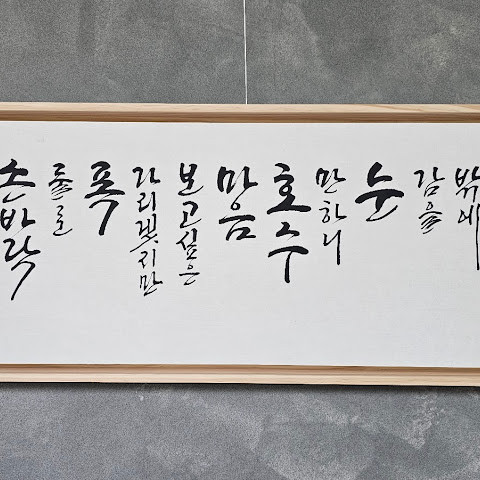 손바닥
둘로
폭
가리겠지만
보고싶은
마음
호수
만하니
눈
감을
밖에